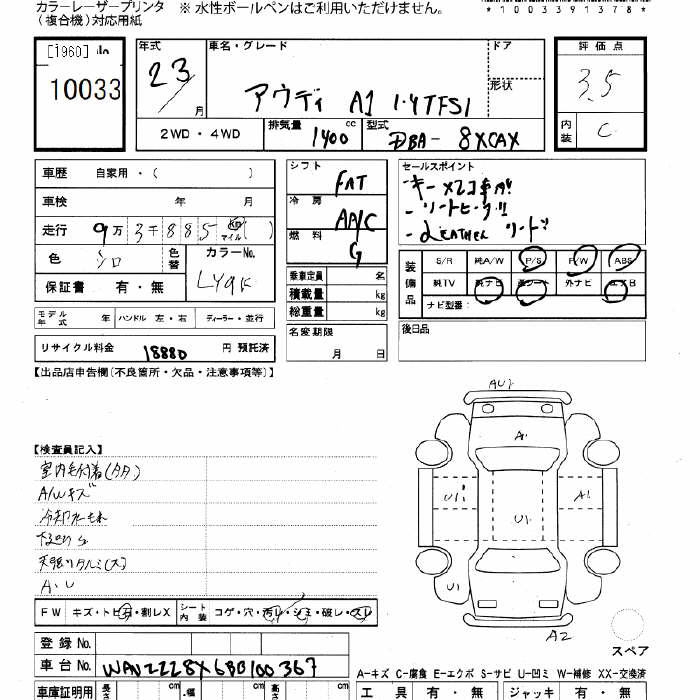 カラーレーザープリンタ ※ 水性ボールペンはご利用いただけません。
(複合機)対応用紙
*1003391378*
[1960]
10033
年式
23
月
車名・グレード
アウディ A1 1.4TFSI
ドア
形状
評価点
3.5
内装
C
2WD・4WD
排気量
1400 cc
型式
DBA- 8XCAX
車歴 自家用・( )
車検 年 月
走行 9万 3千 8 8 5 km マイル ( )
色 シロ
色替
カラーNo.
LY9K
保証書 有・無
モデル年式 年 ハンドル 左・右 ディーラー・並行
リサイクル料金 18880 円 預託済
シフト
FAT
冷房
AA/C
燃料
G
乗車定員 名
積載量 kg
総重量 kg
名変期限
月 日
セールスポイント
- キー ×2コ 車内!!
- シートヒーター!!
- LEATHER シート!!
装備品
S/R 純A/W P/S P/W ABS
純TV 純ナビ 革シート 外ナビ エアB
ナビ型番:
後日品
【出品店申告欄(不良箇所・欠品・注意事項等)】
【検査員記入】
室内毛付着(タタ)
A/Wキズ
冷却水もれ
天張りタルミ(大)
A・U
FW キズ・トビ石・割レX
シート内装 コゲ・穴・汚レ・シミ・破レ・スレ
AU2
A1
U1
A1
U1
U1
A2
スペア
登録No.
車台No. WAUZZZ8X6BB100367
A-キズ C-腐食 E-エクボ S-サビ U-凹ミ W-補修 XX-交換済
車庫証明用 長さ cm 幅 cm 高さ cm
工具 有・無 ジャッキ 有・無